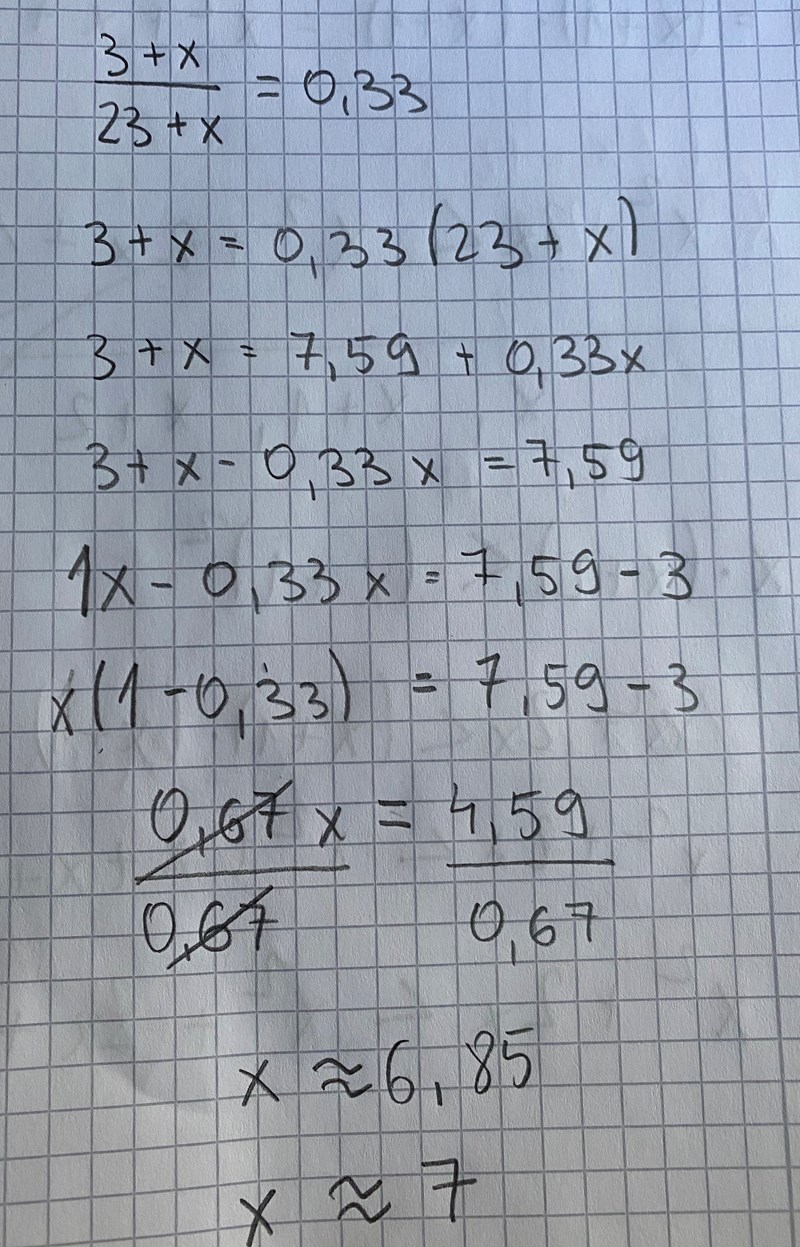 3 + x / 23 + x = 0,33
3 + x = 0,33 (23 + x)
3 + x = 7,59 + 0,33x
3 + x - 0,33 x = 7,59
1x - 0,33 x = 7,59 - 3
x(1 - 0,33) = 7,59 - 3
0,67 x / 0,67 = 4,59 / 0,67
x ≈ 6,85
x ≈ 7